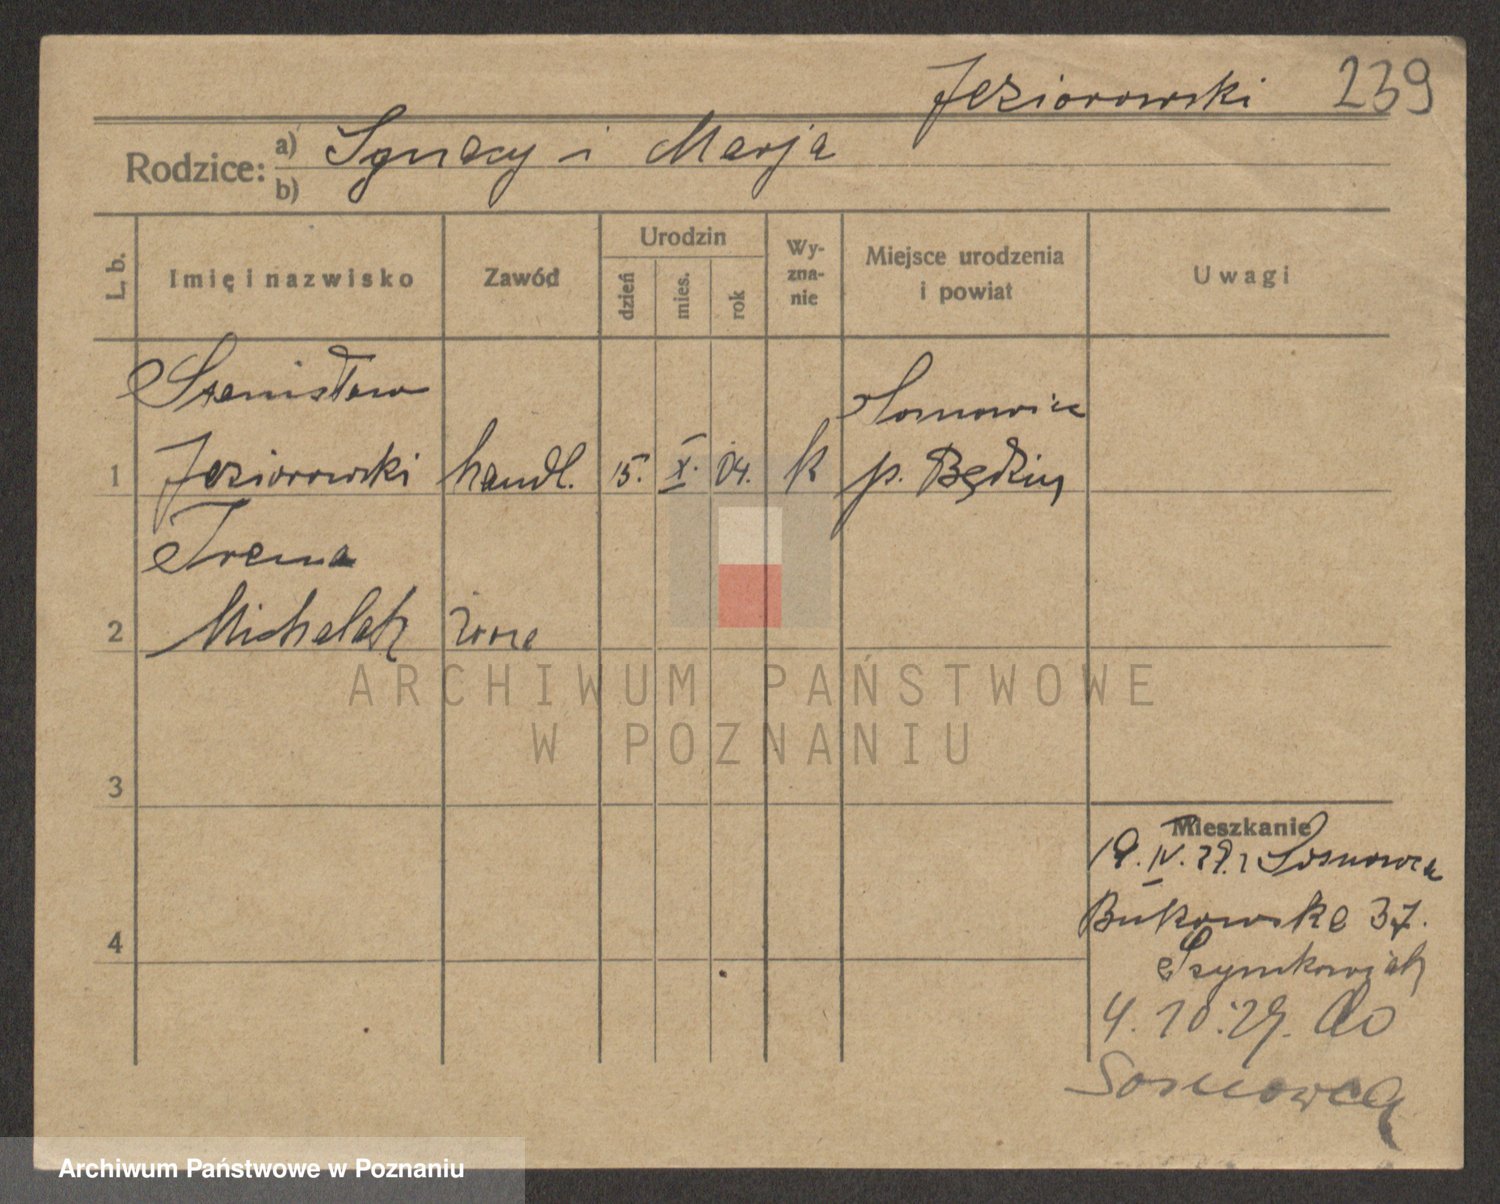 Jeziorowski 239
Rodzice: a) Ignacy i Marja
b)
L. b. Imię i nazwisko Zawód Urodzin dzień mies. rok Wy-zna-nie Miejsce urodzenia i powiat Uwagi
Stanisław
Sosnowiec
1 Jeziorowski handl. 15. X. 04. k p. Będzin
Irena
2 Michalak żona
ARCHIWUM PAŃSTWOWE
W POZNANIU
3
Mieszkanie
19. IV. 29. z Sosnowca
Bukowska 37.
4
Szymkowiak
4. 10. 29. do
Sosnowca
Archiwum Państwowe w Poznaniu